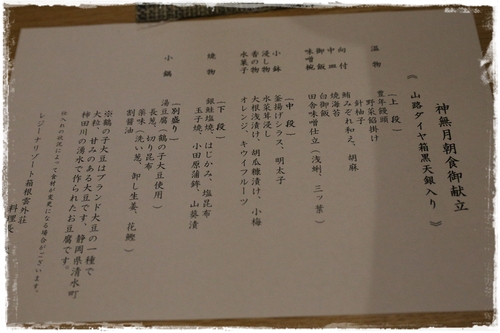 神無月朝食御献立
《 山路ダイヤ箱黒天銀入り 》
【上 段】
温物 豊年饅頭
野菜餡掛け
針柚子
向付 鮪みぞれ和え、胡麻
中皿 焼海苔
御飯 白御飯
味噌椀 田舎味噌仕立(浅蜊、三ッ葉)
【中 段】
小鉢 釜揚げシラス、明太子
浸し物 水菜茸浸し
香の物 大根浅漬け、胡瓜糠漬け、小梅
水菓子 オレンジ、キウイフルーツ
【下 段】
焼物 銀鮭塩焼、はじかみ、塩昆布
玉子焼、小田原蒲鉾、山葵漬
【別盛り】
小鍋 湯豆腐(鶴の子大豆使用)
長葱、切り昆布
薬味(洗い葱、卸し生姜、花鰹)
割醤油
※鶴の子大豆はブランド大豆の一種で
大粒、甘みのある大豆です。静岡県清水町
柿田川の湧水で作られたお豆腐です。
仕入れの状況によって食材が変更になる場合がございます。
レジーナリゾート箱根雲外荘
料理長